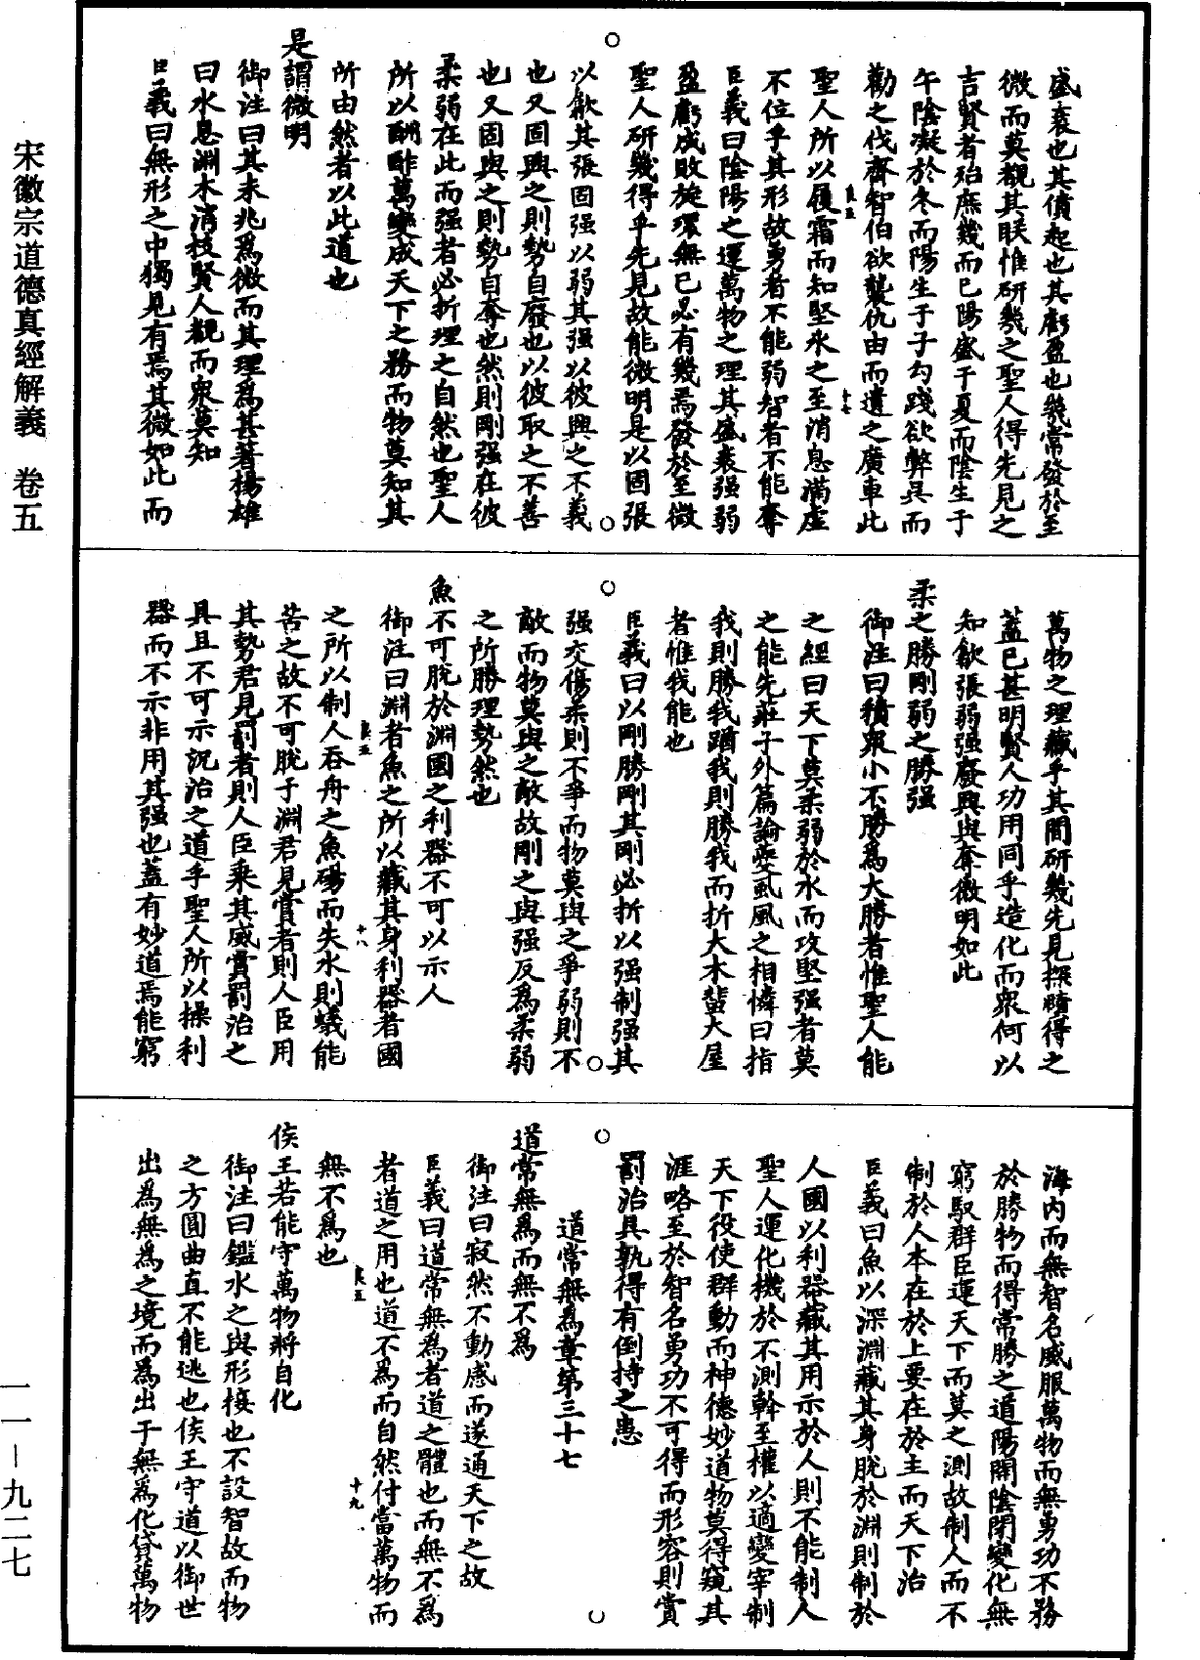 盛衰也其僨起也其虧盈也幾常發於至
微而莫覩其朕惟研幾之聖人得先見之
吉賢者殆庶幾而已陽盛于夏而陰生于
午陰凝於冬而陽生于子勾踐欲弊吳而
勸之伐齊智伯欲襲仇由而遺之廣車此
聖人所以履霜而知堅冰之至消息滿虛
不位乎其形故勇者不能弱智者不能奪
臣義曰陰陽之運萬物之理其盛衰强弱
盈虧成敗旋環無已必有幾焉發於至微
聖人研幾得乎先見故能微明是以固張
以歙其張固强以弱其强以彼興之不義
也又固興之則勢自廢也以彼取之不善
也又固與之則勢自奪也然則剛强在彼
柔弱在此而强者必折理之自然也聖人
所以酬酢萬變成天下之務而物莫知其
所由然者以此道也
是謂微明
御注曰其未兆爲微而其理爲甚著楊雄
曰水息淵木消枝賢人覩而衆莫知
臣義曰無形之中獨見有焉其微如此而
萬物之理藏乎其間研幾先見探賾得之
蓋已甚明賢人功用同乎造化而衆何以
知歙張弱强廢興與奪微明如此
柔之勝剛弱之勝强
御注曰積衆小不勝爲大勝者惟聖人能
之經曰天下莫柔弱於水而攻堅强者莫
之能先莊子外篇論夔虱風之相憐曰指
我則勝我蹈我則勝我而折大木蜚大屋
者惟我能也
臣義曰以剛勝剛其剛必折以强制强其
强交傷柔則不爭而物莫與之爭弱則不
敵而物莫與之敵故剛之與强反爲柔弱
之所勝理勢然也
魚不可脫於淵國之利器不可以示人
御注曰淵者魚之所以藏其身利器者國
之所以制人吞舟之魚碭而失水則蟻能
苦之故不可脫于淵君見賞者則人臣用
其勢君見罰者則人臣乘其威賞罰治之
具且不可示況治之道乎聖人所以操利
器而不示非用其强也蓋有妙道焉能窮
海內而無智名威服萬物而無勇功不務
於勝物而得常勝之道陽開陰閉變化無
窮馭群臣運天下而莫之測故制人而不
制於人本在於上要在於主而天下治
臣義曰魚以深淵藏其身脫於淵則制於
人國以利器藏其用示於人則不能制人
聖人運化機於不測斡至權以適變宰制
天下役使群動而神德妙道物莫得窺其
涯略至於智名勇功不可得而形容則賞
罰治具孰得有倒持之患
道常無爲章第三十七
道常無爲而無不爲
御注曰寂然不動感而遂通天下之故
臣義曰道常無爲者道之體也而無不爲
者道之用也道不爲而自然付當萬物而
無不爲也
侯王若能守萬物將自化
御注曰鑑水之與形接也不設智故而物
之方圓曲直不能逃也侯王守道以御世
出爲無爲之境而爲出于無爲化貸萬物
宋徽宗道德真經解義 卷五
一一—九二七